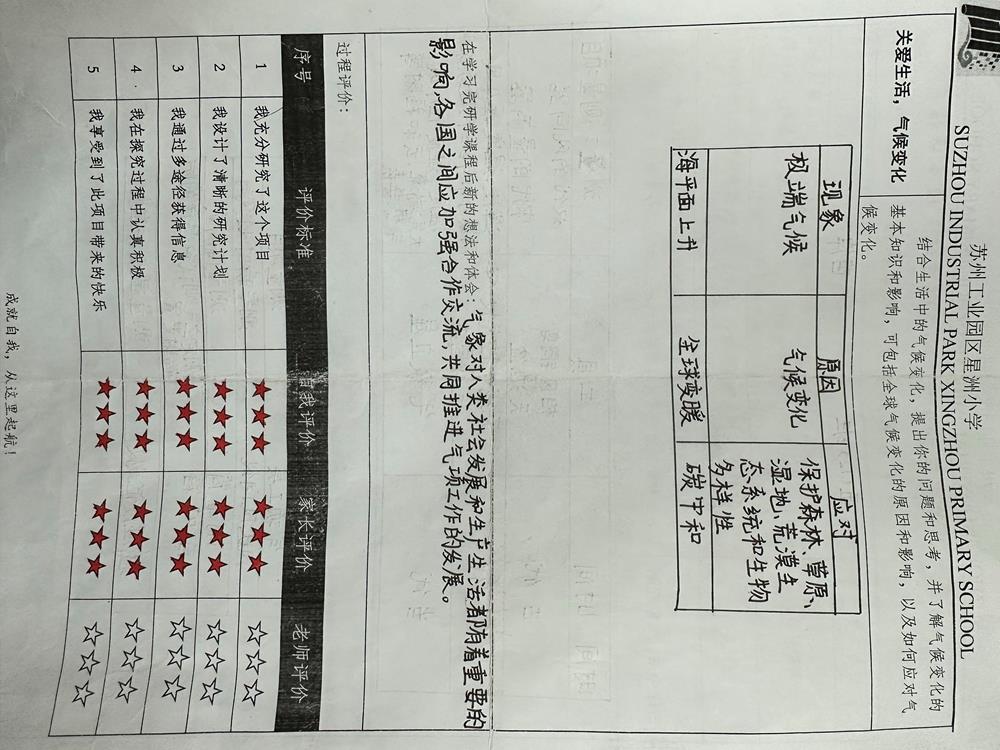 苏州工业园区星洲小学
SUZHOU INDUSTRIAL PARK XINGZHOU PRIMARY SCHOOL
关爱生活，气候变化
结合生活中的气候变化，提出你的问题和思考，并了解气候变化的
基本知识和影响，可包括全球气候变化的原因和影响，以及如何应对气
候变化。
现象 原因 应对
极端气候 气候变化 保护森林、草原、
湿地、荒漠生
态系统和生物
多样性
海平面上升 全球变暖 碳中和
在学习完研学课程后新的想法和体会：气象对人类社会发展和生产生活都有着重要的
影响,各国之间应加强合作交流,共同推进气项工作的发展。
过程评价：
序号 评价标准 自我评价 家长评价 老师评价
1 我充分研究了这个项目 ★★★ ★★★ ☆☆☆
2 我设计了清晰的研究计划 ★★★ ★★★ ☆☆☆
3 我通过多途径获得信息 ★★★ ★★★ ☆☆☆
4 我在探究过程中认真积极 ★★★ ★★★ ☆☆☆
5 我享受到了此项目带来的快乐 ★★★ ★★★ ☆☆☆
成就自我，从这里起航！